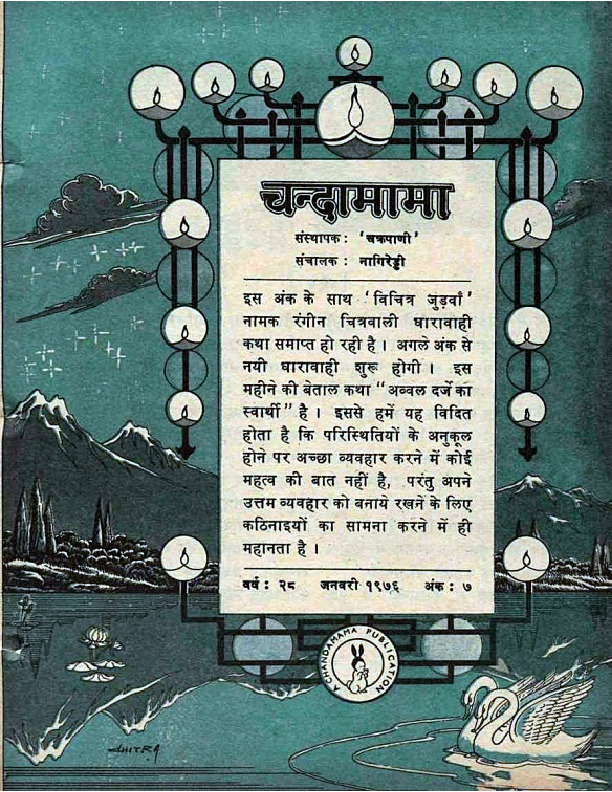 चन्दामामा
संस्थापक : 'चक्रपाणी'
संचालक : नागिरेड्डी
इस अंक के साथ 'विचित्र जुड़वाँ"
नामक रंगीन चित्रवाली धारावाही
कथा समाप्त हो रही है । अगले अंक से
नयी धारावाही शुरू होगी । इस
महीने की बेताल कथा "अव्वल दर्जे का
स्वार्थी" है । इससे हमें यह विदित
होता है कि परिस्थितियों के अनुकूल
होने पर अच्छा व्यवहार करने में कोई
महत्व की बात नहीं है, परंतु अपने
उत्तम व्यवहार को बनाये रखने के लिए
कठिनाइयों का सामना करने में ही
महानता है ।
वर्ष : २८ जनवरी १९७६ अंक : ७
A CHANDAMAMA PUBLICATION
CHITRA